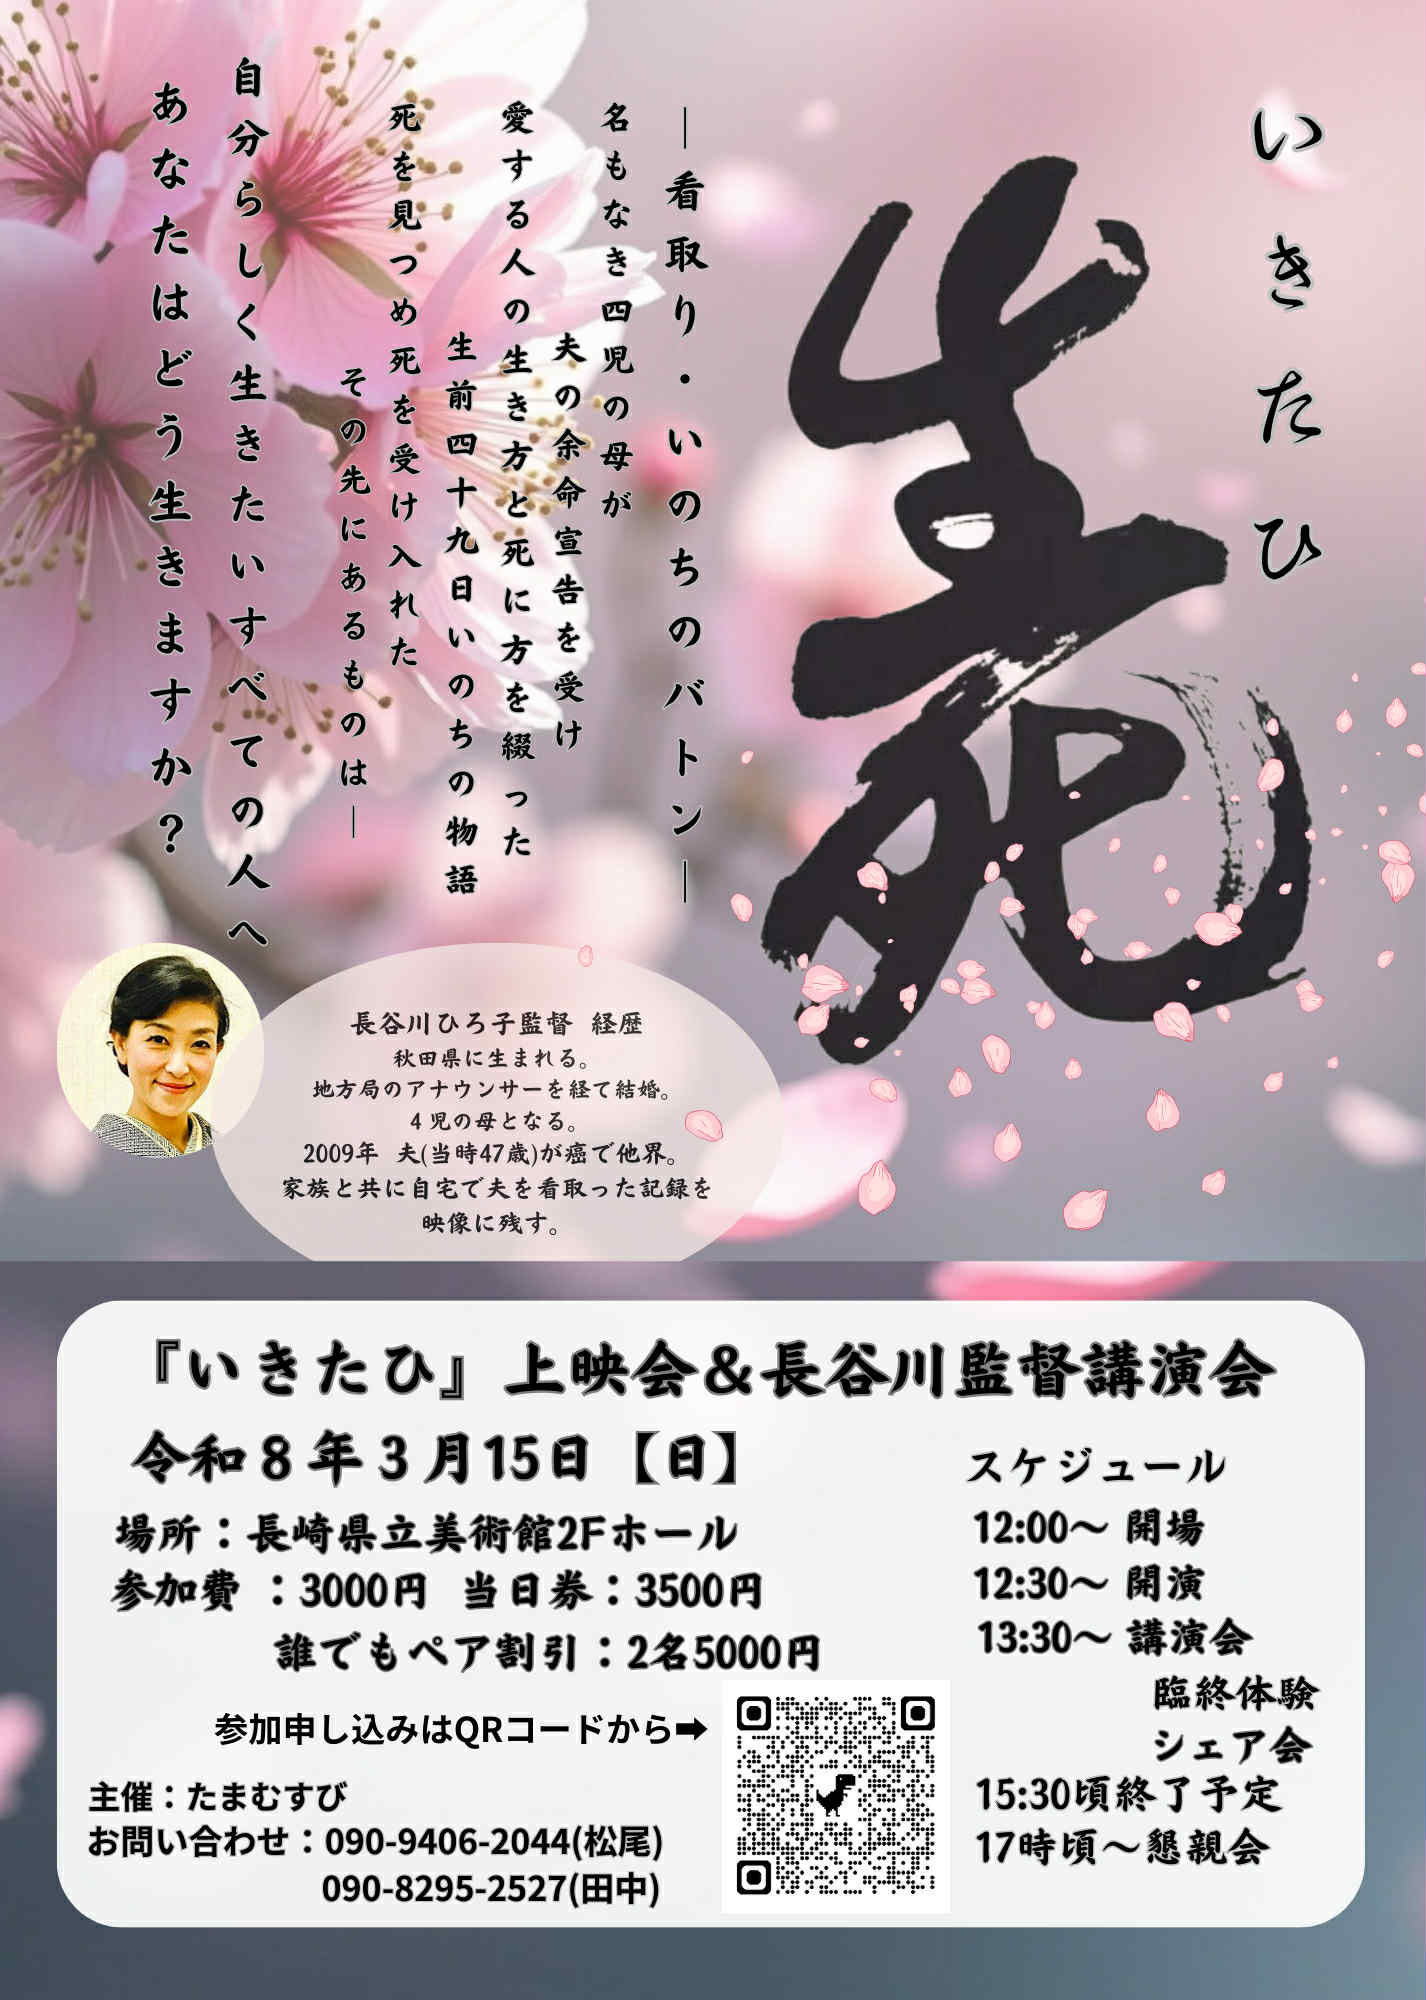 いきたひ
生死
―看取り・いのちのバトン―
名もなき四児の母が
夫の余命宣告を受け
愛する人の生き方と死に方を綴った
生前四十九日いのちの物語
死を見つめ死を受け入れた
その先にあるものは―
自分らしく生きたいすべての人へ
あなたはどう生きますか?
長谷川ひろ子監督 経歴
秋田県に生まれる。
地方局のアナウンサーを経て結婚。
4児の母となる。
2009年 夫(当時47歳)が癌で他界。
家族と共に自宅で夫を看取った記録を
映像に残す。
『いきたひ』上映会&長谷川監督講演会
令和8年3月15日【日】
場所:長崎県立美術館2Fホール
参加費 :3000円 当日券:3500円
誰でもペア割引:2名5000円
参加申し込みはQRコードから➡
主催:たまむすび
お問い合わせ:090-9406-2044(松尾)
090-8295-2527(田中)
スケジュール
12:00~ 開場
12:30~ 開演
13:30~ 講演会
臨終体験
シェア会
15:30頃終了予定
17時頃~懇親会